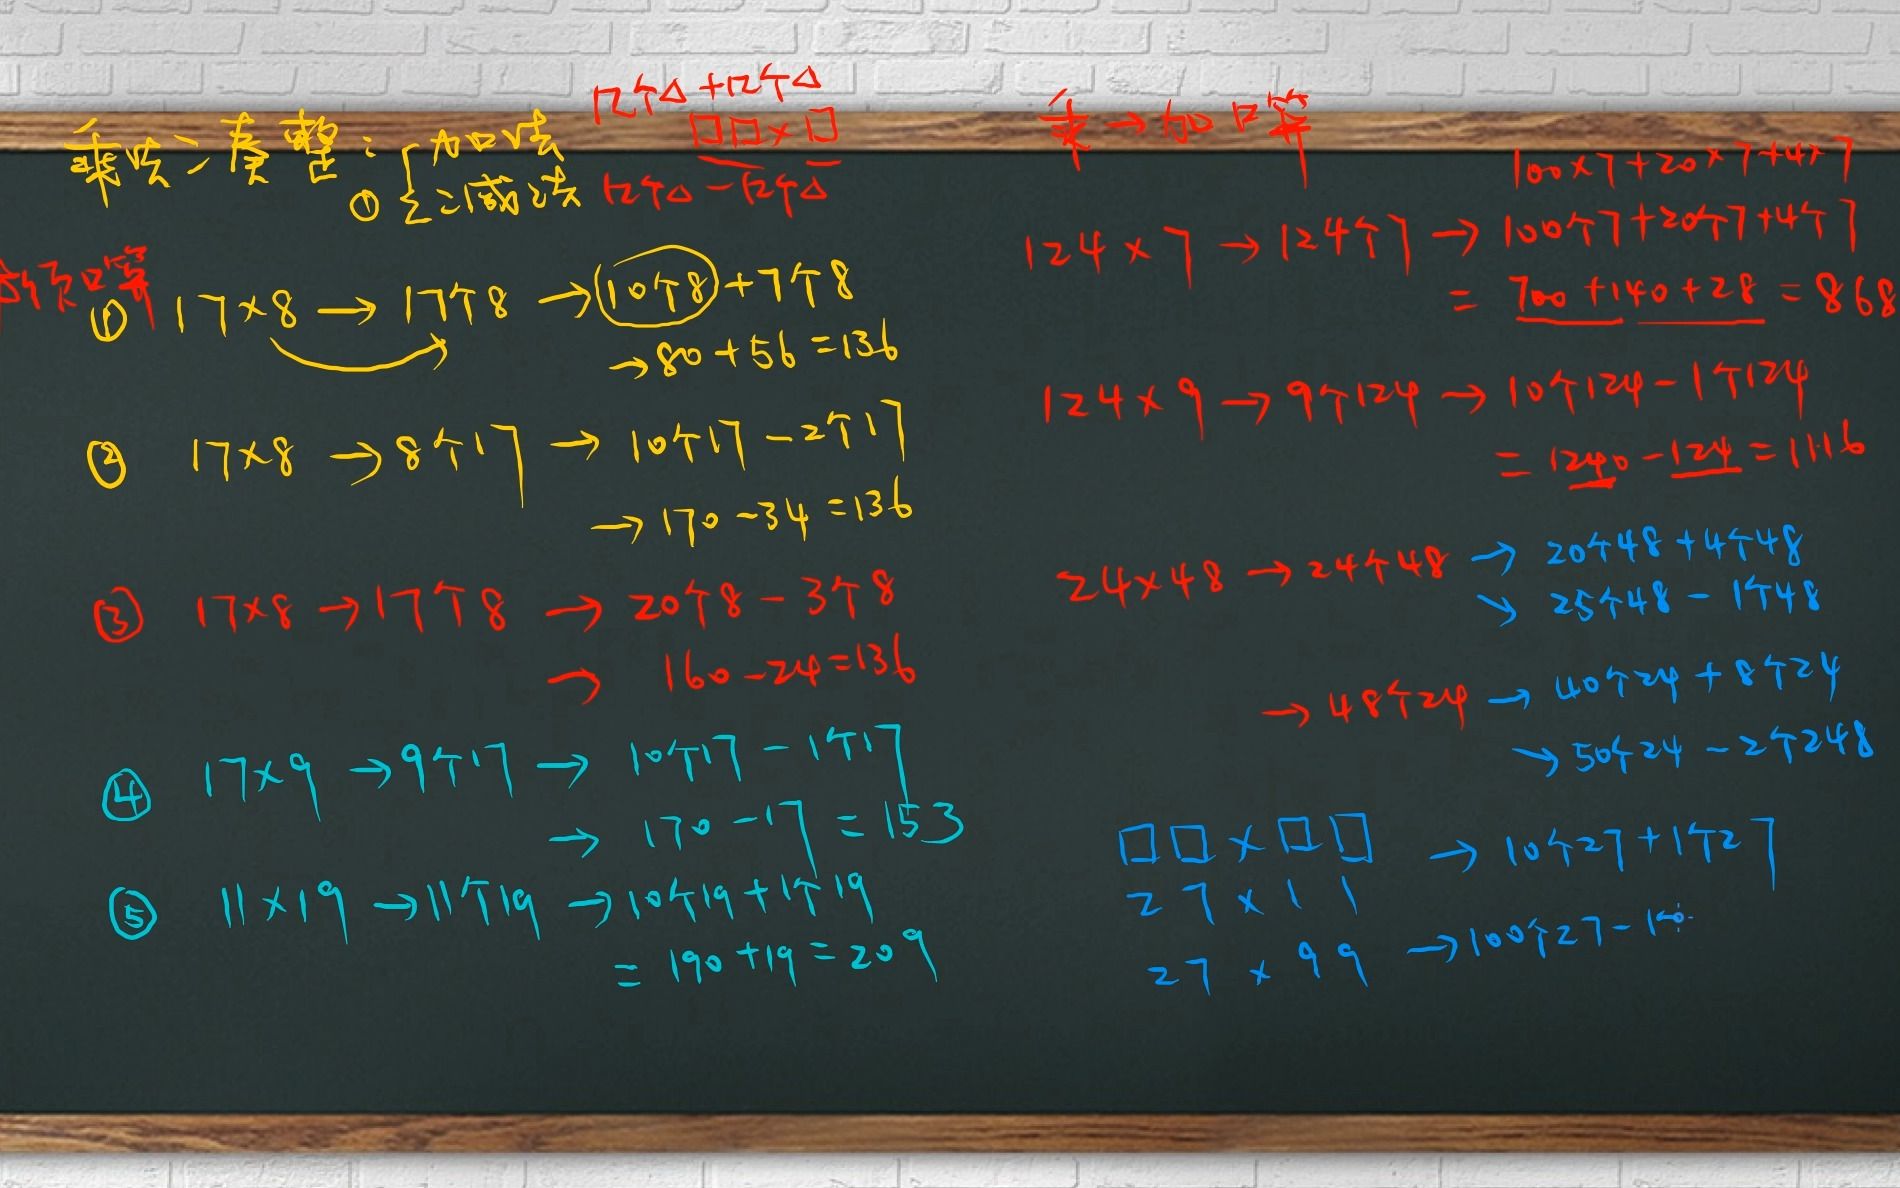 乘法凑整：
加法
① 减法
12个△+12个△
□□×□
12个△-12个△
口算
① 17×8→17个8→10个8+7个8
→80+56=136
② 17×8→8个17→10个17-2个17
→170-34=136
③ 17×8→17个8→20个8-3个8
→160-24=136
④ 17×9→9个17→10个17-1个17
→170-17=153
⑤ 11×19→11个19→10个19+1个19
=190+19=209
乘→加口算
100×7+20×7+4×7
124×7→124个7→100个7+20个7+4个7
=700+140+28=868
124×9→9个124→10个124-1个124
=1240-124=1116
24×48→24个48→20个48+4个48
→25个48-1个48
→48个24→40个24+8个24
→50个24-2个248
□□×□□
27×11→10个27+1个27
27×99→100个27-1